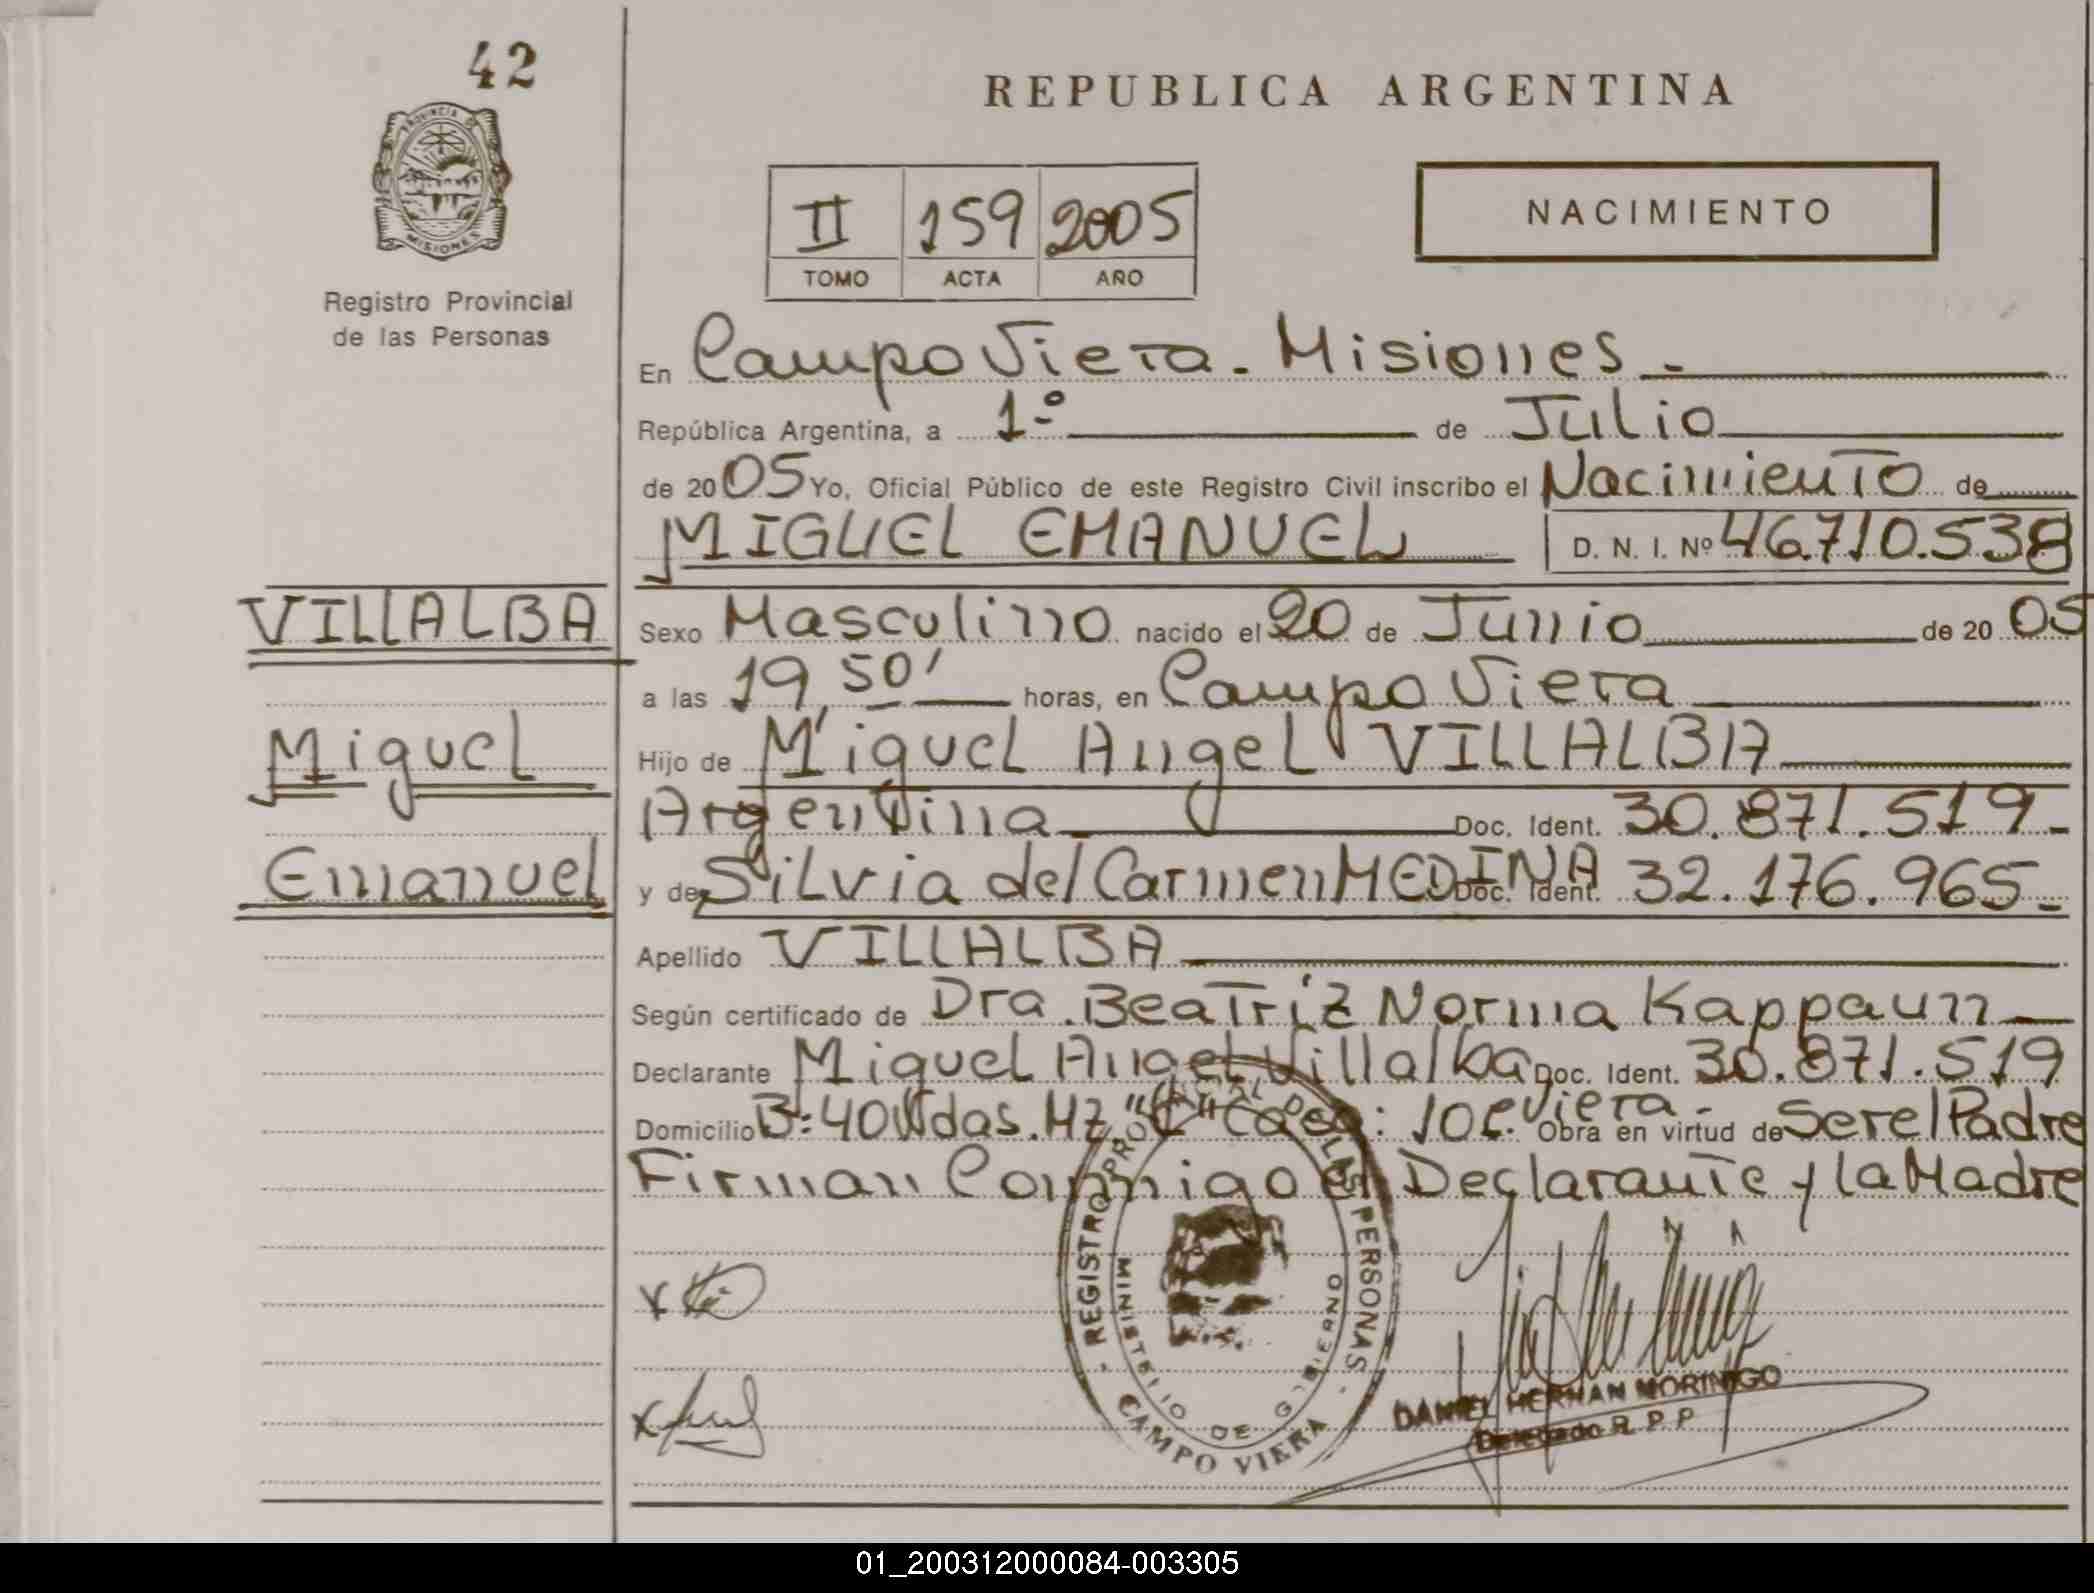 42
REPUBLICA ARGENTINA
PROVINCIA DE
MISIONES
Registro Provincial
de las Personas
II 159 2005
TOMO ACTA AÑO
NACIMIENTO
En Campo Viera - Misiones -
República Argentina, a 1º de Julio
de 2005 Yo, Oficial Público de este Registro Civil inscribo el Nacimiento de
MIGUEL EMANUEL D. N. I. Nº 46.710.538
VILLALBA
Miguel
Emanuel
Sexo Masculino nacido el 20 de Junio de 20 05
a las 19,50' horas, en Campo Viera
Hijo de Miguel Angel VILLALBA
Argentina Doc. Ident. 30.871.519-
y de Silvia del Carmen MEDINA Doc. Ident. 32.176.965-
Apellido VILLALBA
Según certificado de Dra. Beatriz Norma Kappaun
Declarante Miguel Angel Villalba Doc. Ident. 30.871.519
Domicilio B: 40 Vvdas. Mz "C" Casa: 10 C. Viera - Obra en virtud de Ser el Padre
Firman Conmigo el Declarante y la Madre
- REGISTRO PROVINCIAL DE LAS PERSONAS -
MINISTERIO DE GOBIERNO
CAMPO VIERA
DANIEL HERNAN MORINIGO
Delegado R. P. P
01_200312000084-003305